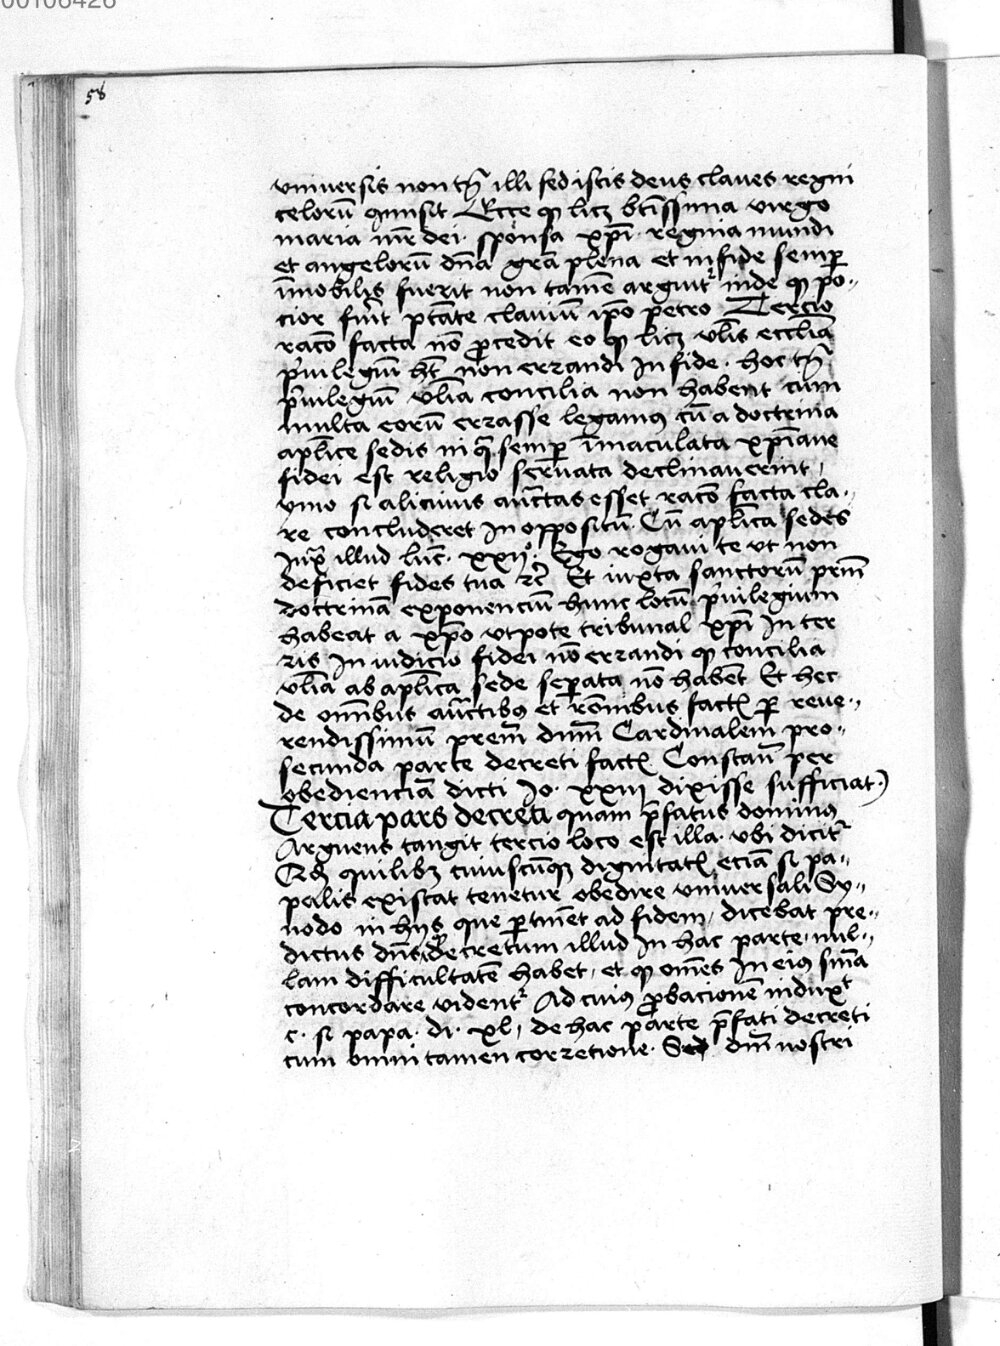 00106426
58
vniuersis non tñ illi sed istis deus claues regni
celorū comisit Ecce qp licz btīssima virgo
maria mr̄ dei sponsa xpī regina mundi
et angelorū dña grā plena et in fide semp
īmobilis fuerit non tamē arguit inde qp po-
cior fuit ptāte clauiū ipō petro Tercio
racō facta nō procedit eo qp licz vlis ecclīa
priuilegiū hēt non errandi in fide hoc tñ
priuilegiū vlīa concilia non habent cum
multa eorū errasse legamus cū a doctrina
aplice sedis in qua semp īmaculata xpīane
fidei est religio seruata declinauerint
ymo si alicuius auctas esset racō facta cla-
re concluderet in oppositū Cū aplīca sedes
iuxta illud luc. xxij° Ego rogaui te vt non
deficiet fides tua rc̄ Et iuxta sanctorū prm̄
doctrinā exponenciū hunc locū priuilegium
habeat a xpō vtpote tribunal xpī in ter
ris in iudicio fidei nō errandi qp concilia
vlīa ab aplīca sede sepata nō habēt Et hec
de omībus auctībus et rōnibus factis p reue-
rendissimū prem̄ dnm̄ Cardinalem pro
secunda parte decreti facti Constan̄ per
obedienciā dicti Jo. xxiij dixisse sufficiat
Tercia pars decreti quam p̄fatus dominus
Arguens tangit tercio loco est illa vbi dicit
Qd quilibz cuiuscūqz dignitatis eciā si pa-
palis existat tenetur obedire vniuersali Sy-
nodo in hijs que ptinēt ad fidem, dicebat pre-
dictus dñs decretum illud in hac parte nul-
lam difficultatē habet, et qp oēs in eius snīa
concordare vident Ad cuius probacionē induxt
c. si papa. di. xl, de hac parte p̄fati decreti
cum omni tamen corretione. Sed dnī nostri